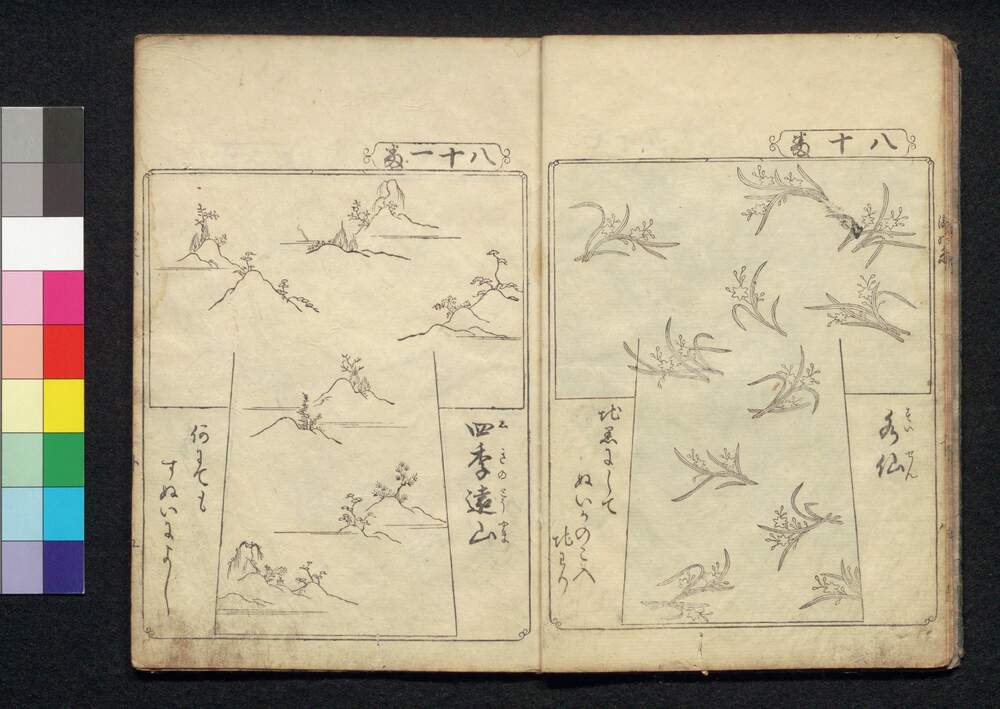 八十番
水仙
すい せん
地黒にして
ぬいかのこ入
地わり
八十一番
四季遠山
しきのとうやま
何にても
すぬいによし